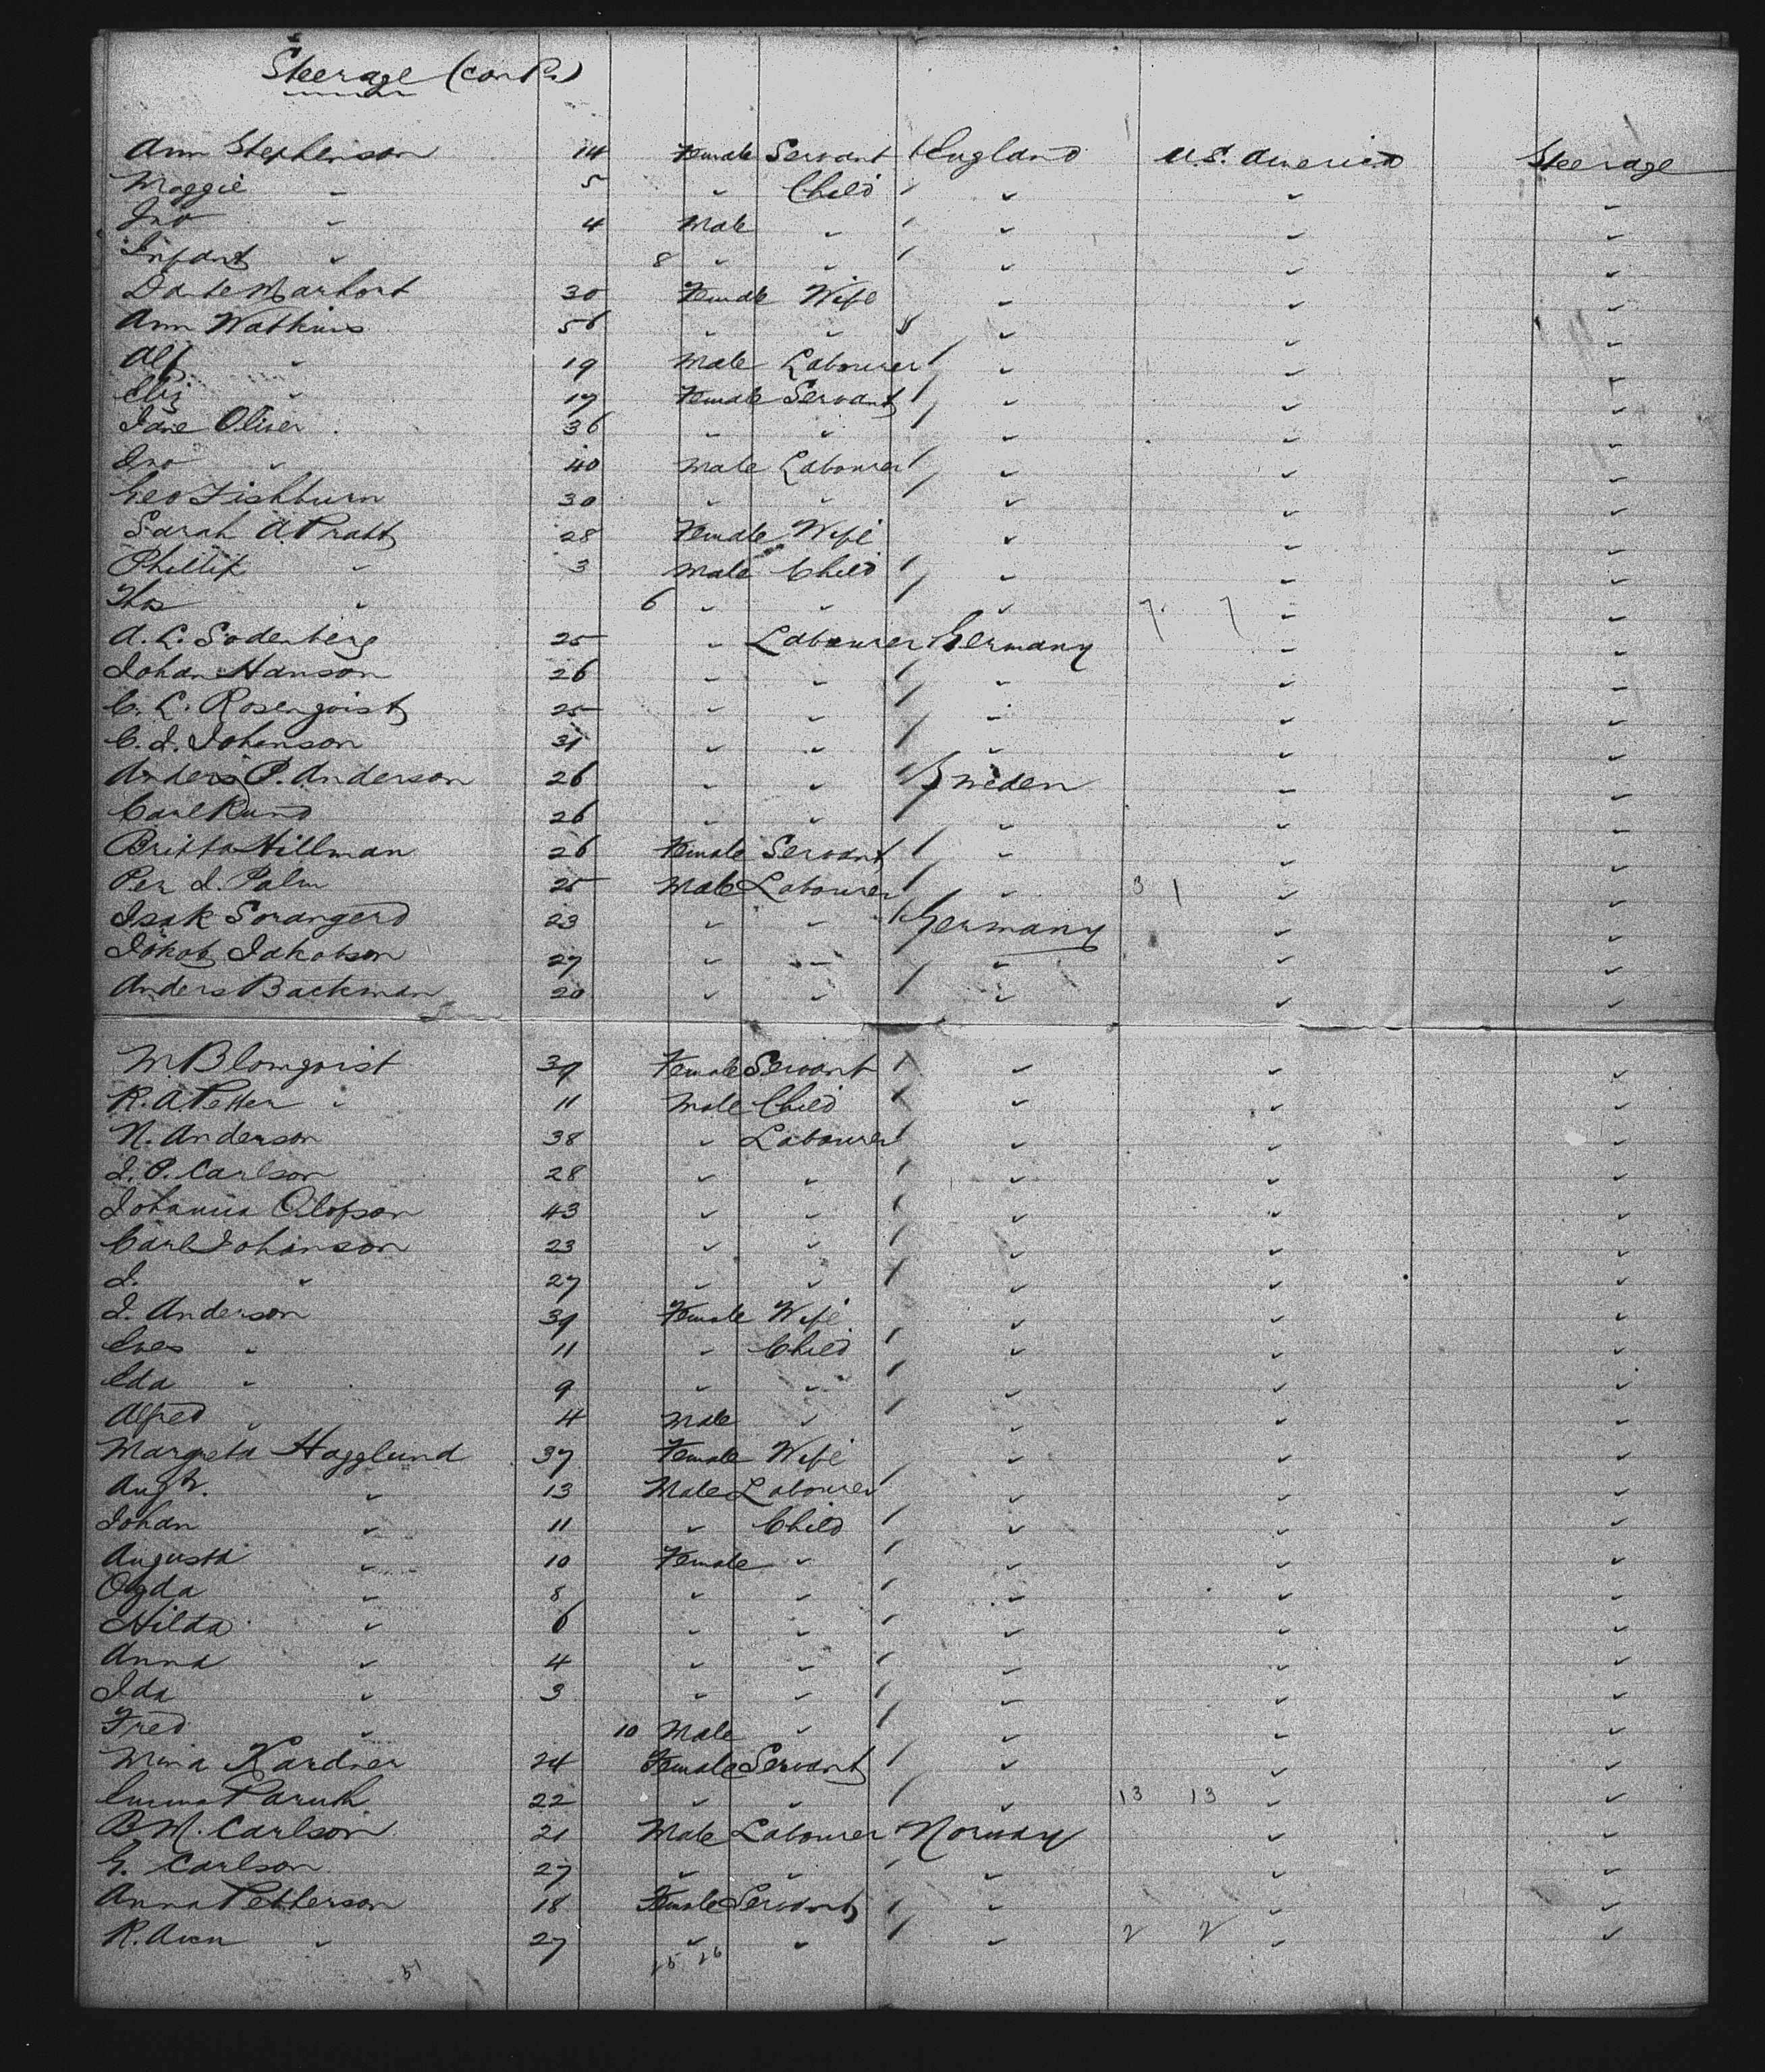 Steerage (contd)
Ann Stephenson 14 Female Servant England U.S. America Steerage
Maggie " 5 " Child " " "
Jno " 4 Male " " " "
Infant " 8 " " " " "
30 Female Wife " " "
Ann Watkins 56 " " " " "
Alf " 19 Male Labourer " " "
Eliz " 17 Female Servant " " "
Jane Oliver 36 " " " " "
Jno " 40 Male Labourer " " "
Geo Fishburn 30 " " " " "
Sarah A. Pratt 28 Female Wife " " "
Phillip " 3 Male Child " " "
Thos " 6 " " " 7 7 " "
A. L. Soderberg 25 " Labourer Germany " "
Johan Hanson 26 " " " " "
C. L. Rosenqoist 25 " " " " "
C. J. Johenson 31 " " " " "
Anders P. Anderson 26 " " Sweden " "
Carl Rund 26 " " " " "
Britta Hillman 26 Female Servant " " "
Per J. Palm 25 Male Labourer " 3 1 " "
Isak Sorangerd 23 " " Germany " "
Jakob Jakobson 27 " " " " "
Anders Backman 20 " " " " "
M. Blomqoist 39 Female Servant " " "
R. A. Petter " 11 Male Child " " "
N. Anderson 38 " Labourer " " "
J. P. Carlson 28 " " " " "
Johanna Olofson 43 " " " " "
Carl Johanson 23 " " " " "
J. " 27 " " " " "
J. Anderson 39 Female Wife " " "
" 11 " Child " " "
Eda " 9 " " " " "
Alfred " 4 Male " " " "
Margreta Hagglund 37 Female Wife " " "
Augt. " 13 Male Labourer " " "
Johan " 11 " Child " " "
Augusta " 10 Female " " " "
Ogda " 8 " " " " "
Hilda " 6 " " " " "
Anna " 4 " " " " "
Ida " 3 " " " " "
Fred " 10 Male " " " "
Mina Kardner 24 Female Servant " " "
Emma 22 " " " 13 13 " "
B M. Carlson 21 Male Labourer Norway " "
G. Carlson 27 " " " " "
Anna Petterson 18 Female Servant " " "
R. " 27 " " " 2 2 " "
51 25 26